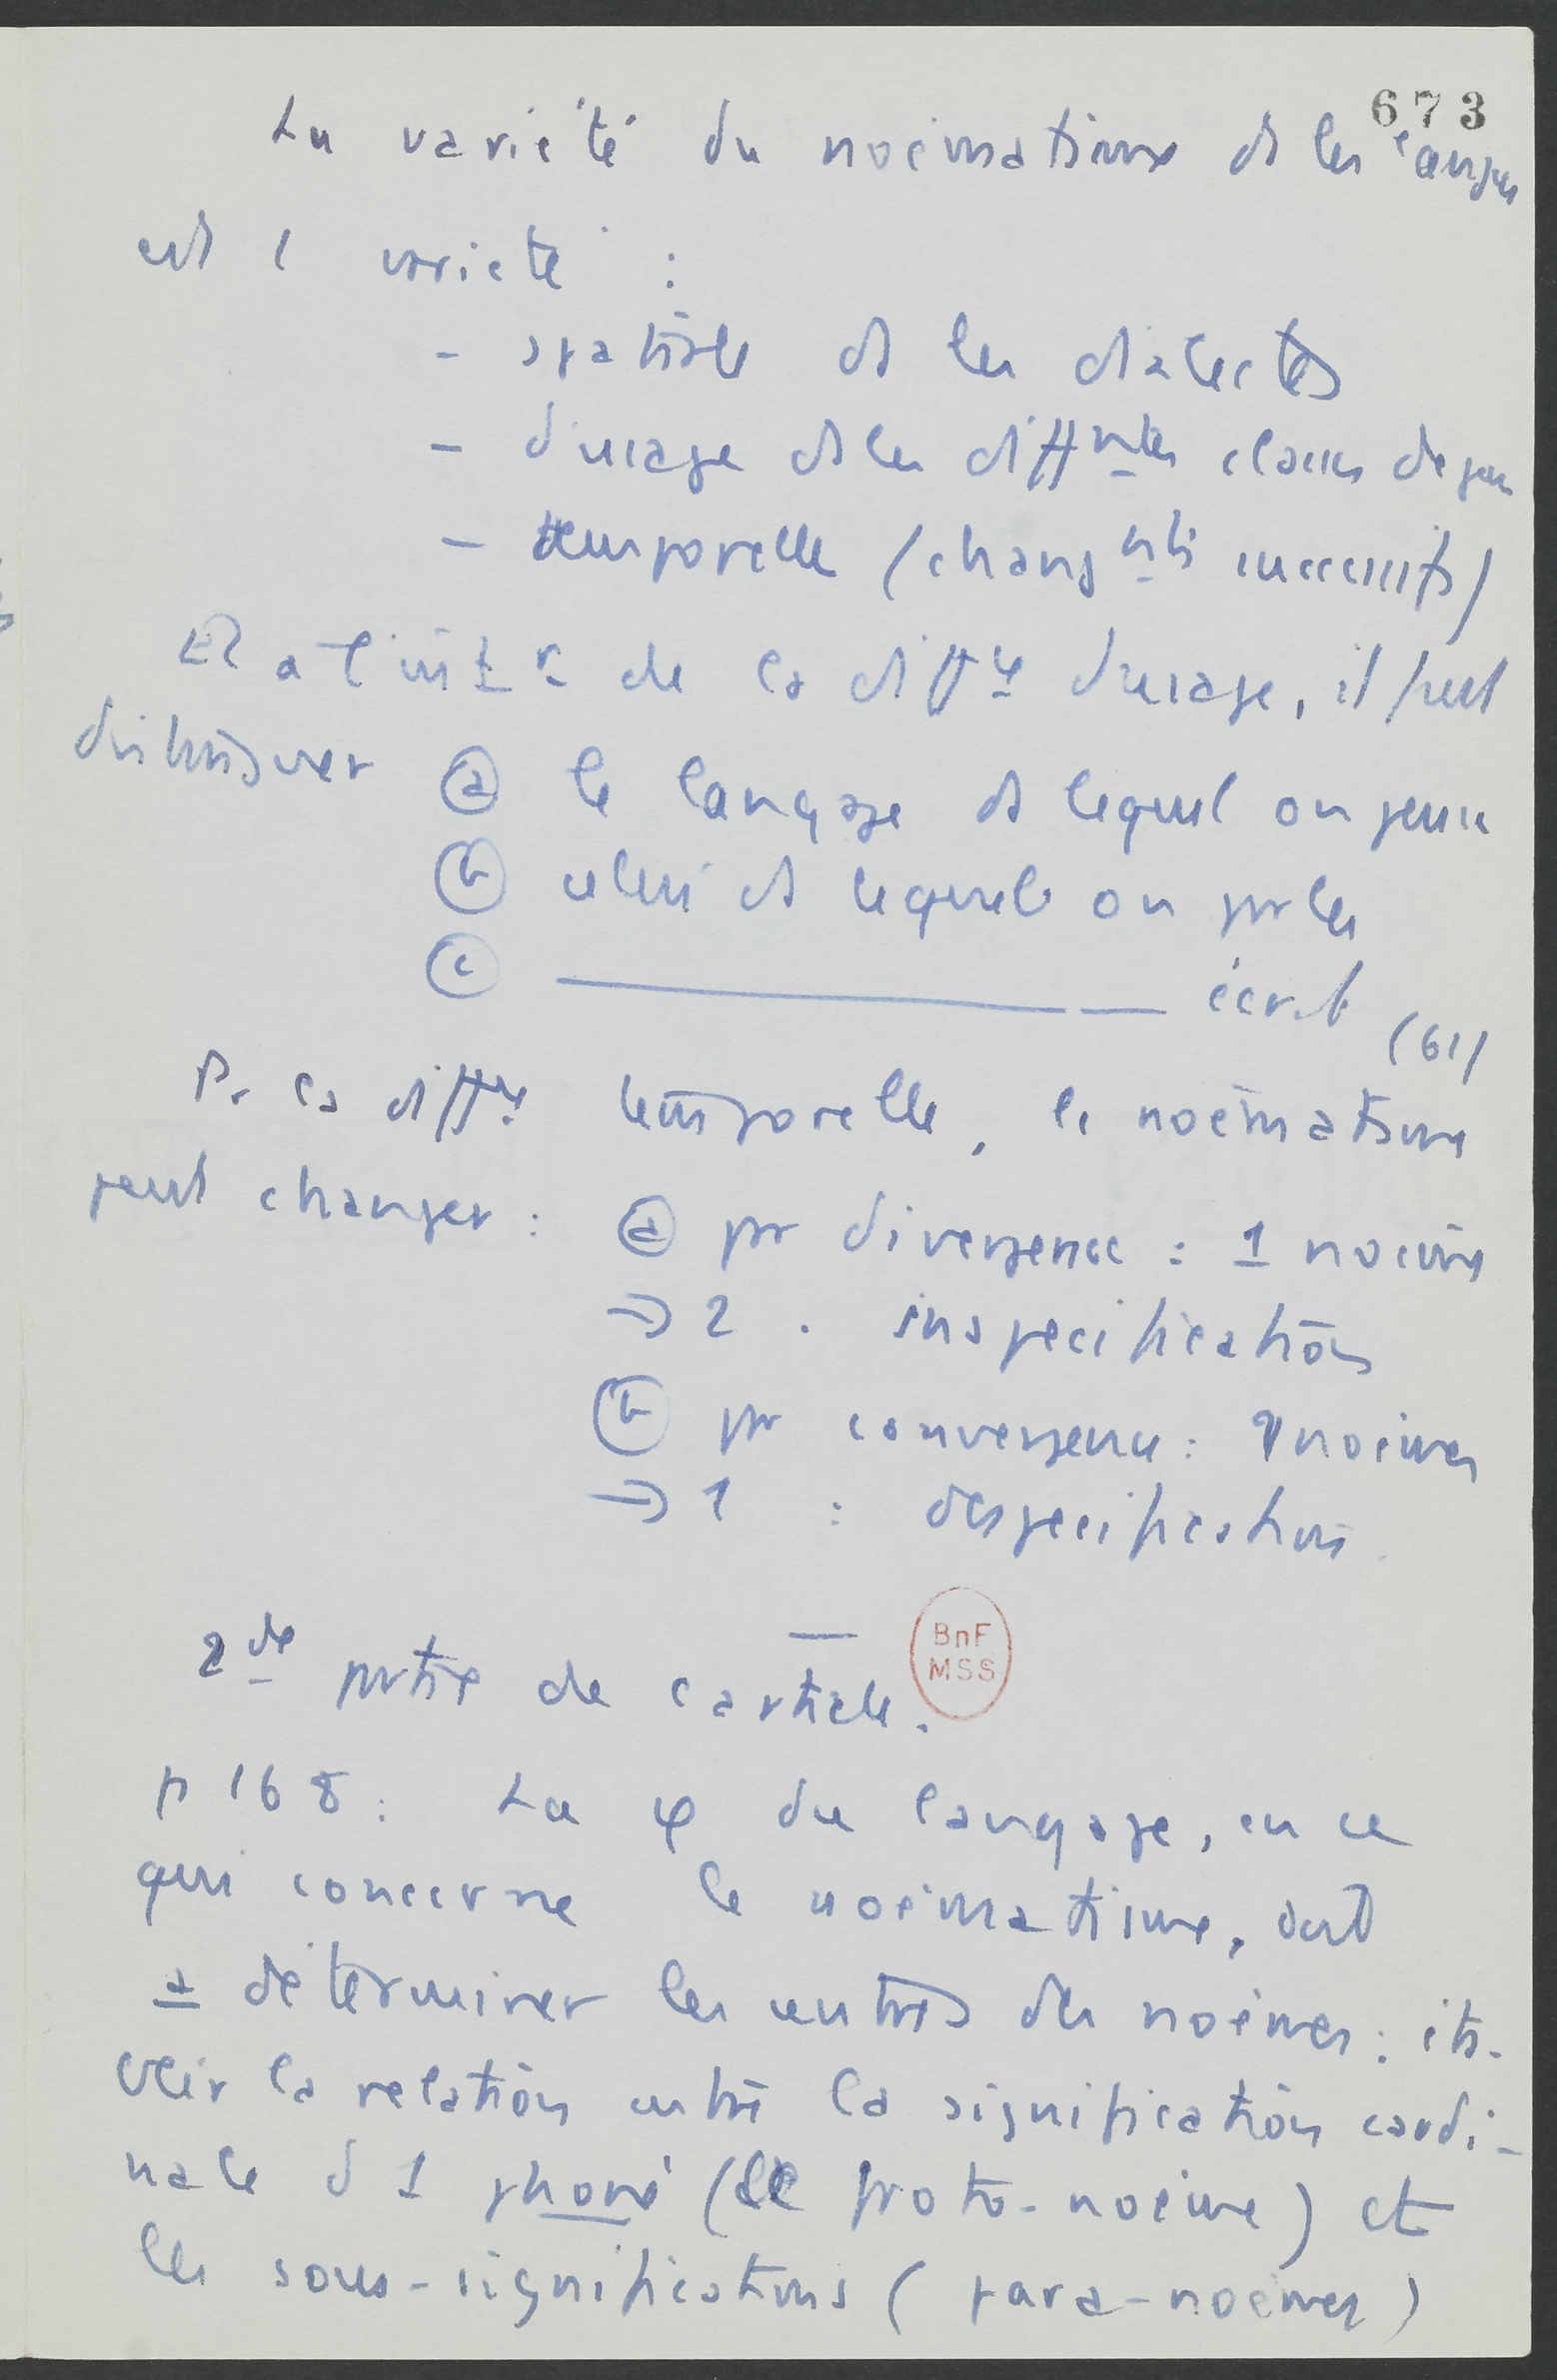 673
La variété du noématisme ds les langues
est 1 variété :
- spatiale ds les dialectes
- d'usage ds les diffntes classes de gens
- temporelle (changnts successifs)
Et a l'intr de la diffce d'usage, il faut
distinguer (a) le langage ds lequel on pense
(b) celui ds lequel on parle
(c) ——— écrit (61)
Pr la diffce temporelle, le noématisme
peut changer : (a) par divergence : 1 noème
→ 2 . inspécification
(b) par convergence : 2 noèmes
→ 1 : despécification.
—
2de partie de l'article.
BnF
MSS
p 168 : La φ du langage, en ce
qui concerne le noématisme, doit
a déterminer les centres des noèmes : its.
voir la relation entre la signification cardi-
nale d 1 phoné (le proto-noème) et
les sous-significations (para-noèmes)